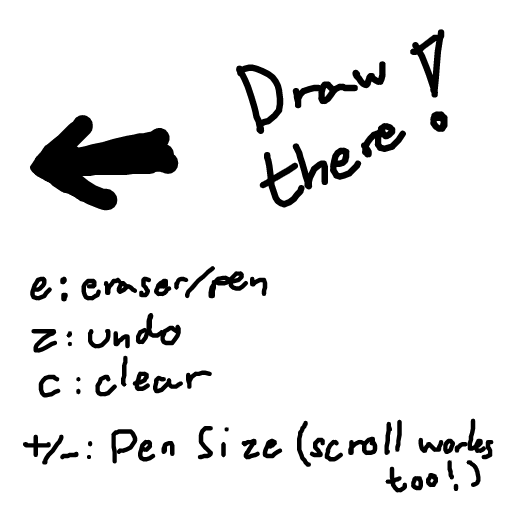 Draw!
there
e: eraser/pen
z: undo
c: clear
+/-: Pen Size (scroll works
too!)